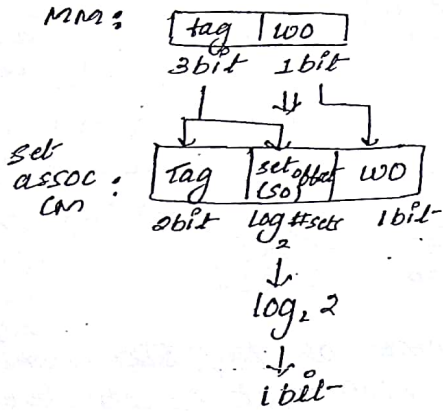 MM: tag WO
3bit 1bit
set assoc CM: Tag set offset (SO) WO
2bit log₂ #sets 1bit
log₂ 2
1bit